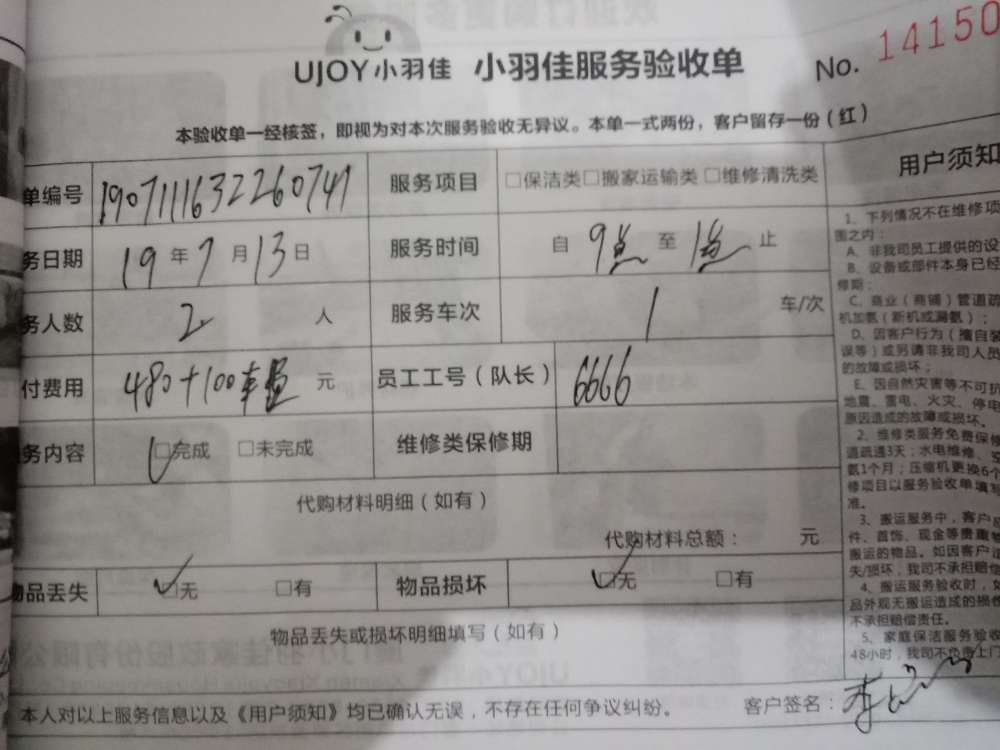 UJOY小羽佳 小羽佳服务验收单 No. 14150
本验收单一经核签，即视为对本次服务验收无异议。本单一式两份，客户留存一份（红）
单编号 190711163226074 服务项目 □保洁类□搬家运输类□维修清洗类
务日期 19年7月13日 服务时间 自 9点 至 1点 止
务人数 2 人 服务车次 1 车/次
付费用 480+100 元 员工工号（队长） 6666
务内容 □完成 □未完成 维修类保修期
代购材料明细（如有）
代购材料总额： 元
物品丢失 □无 □有 物品损坏 □无 □有
物品丢失或损坏明细填写（如有）
本人对以上服务信息以及《用户须知》均已确认无误，不存在任何争议纠纷。 客户签名：李
用户须知
1、下列情况不在维修项
围之内：
A、非我司员工提供的设
B、设备或部件本身已经
修期；
C、商业（商铺）管道疏
机加氨（新机或漏氨）；
D、因客户行为（擅自装
误等）或另请非我司人员
的故障或损坏；
E、因自然灾害等不可抗
地震、雷电、火灾、停电
原因造成的故障或损坏。
2、维修类服务免费保修
道疏通3天；水电维修、空
氨1个月；压缩机更换6个
修项目以服务验收单填写
准。
3、搬运服务中，客户
件、首饰、现金等贵重物
搬运的物品。如因客户
失/损坏，我司不承担赔偿
4、搬运服务验收时，如
品外观无搬运造成的损
不承担赔偿责任。
5、家庭保洁服务验收
48小时，我司不负责上门